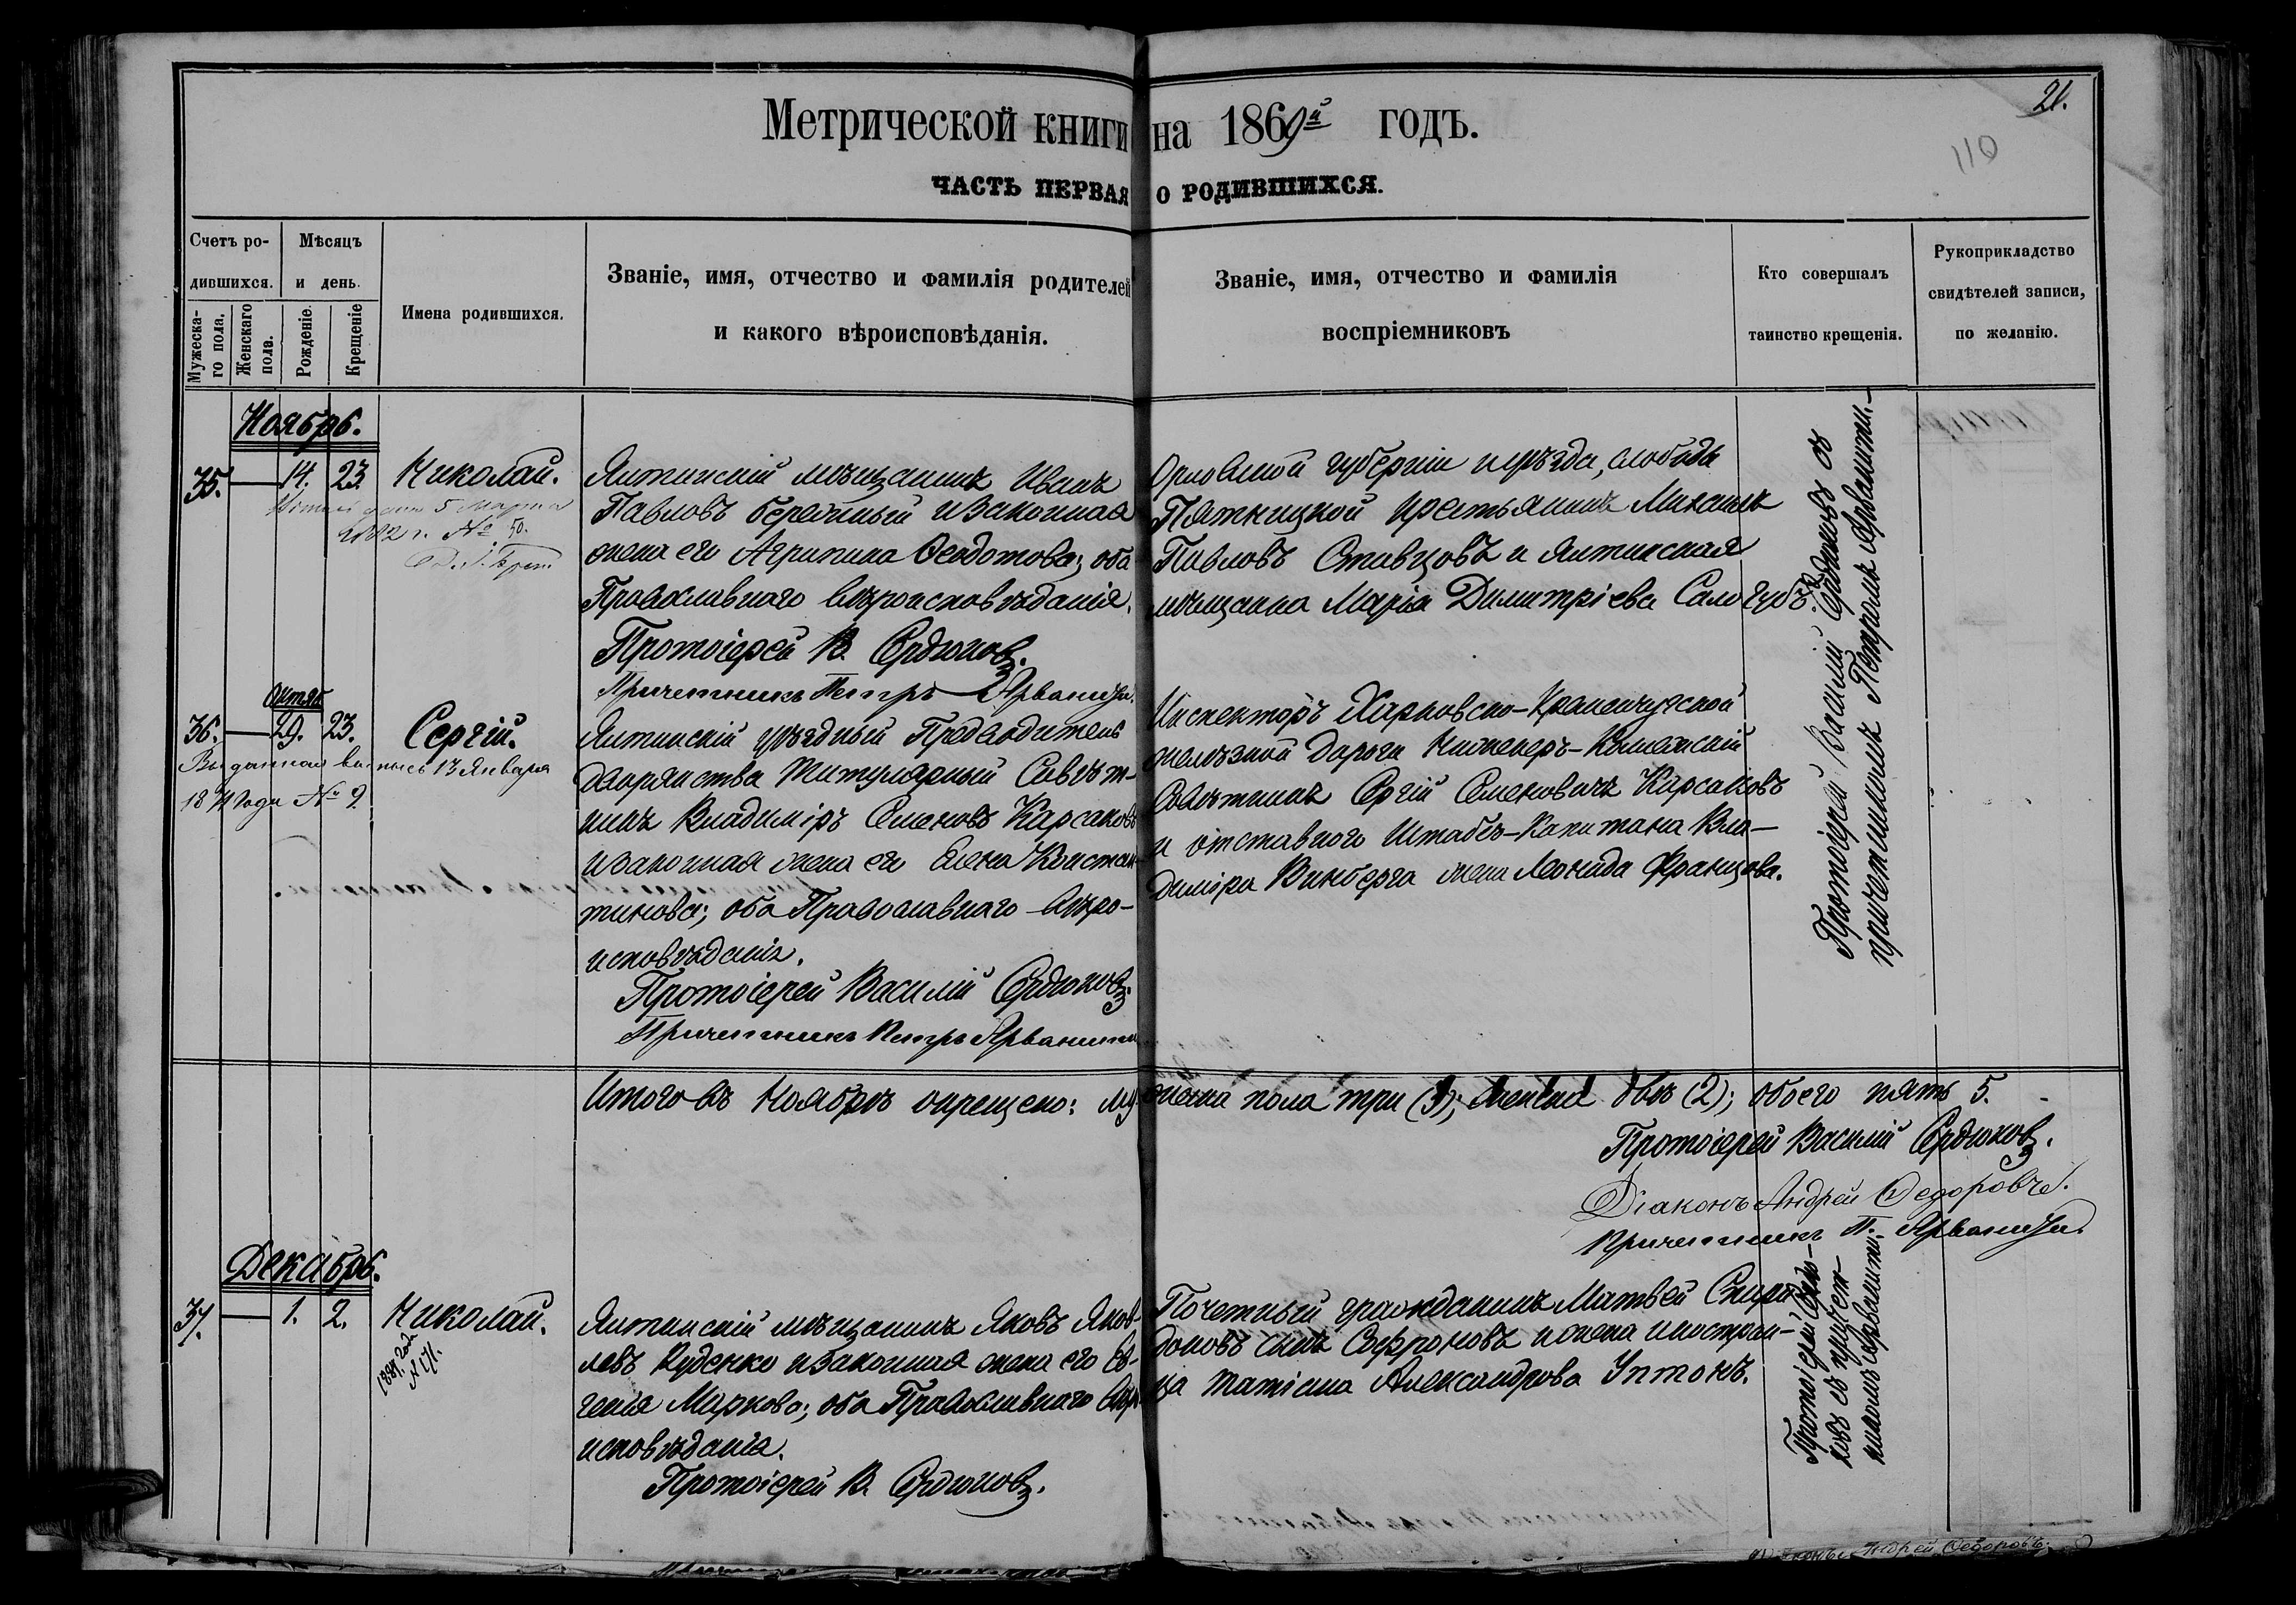 21.
110
Метрической книги на 1869й годъ.
ЧАСТЬ ПЕРВАЯ О РОДИВШИХСЯ.
Счетъ ро-
дившихся.
Мужеска-
го пола.
Женскаго
пола.
Мѣсяцъ
и день.
Рожденіе.
Крещеніе
Имена родившихся.
Званіе, имя, отчество и фамилія родителей
и какого вѣроисповѣданія.
Званіе, имя, отчество и фамилія
воспріемниковъ
Кто совершалъ
таинство крещенія.
Рукоприкладство
свидѣтелей записи,
по желанію.
Ноябрь.
35. 14. 23. Николай.
5 Марта
№ 50.
Ялтинскій мѣщанинъ Иванъ
Павловъ Бережный и законная
жена его Агрипина Ѳеодотова; оба
Православнаго вѣроисповѣданія.
Протоіерей В. Сердюковъ.
Причетникъ Петръ Арванити.
Орловской губерніи и уѣзда, слободы
Пятницкой крестьянинъ Михаилъ
Павловъ Ставцовъ и ялтинская
мѣщанка Марія Димитріева Сологубъ.
Протоіерей Василій Сердюковъ съ
причетникомъ Петромъ Арванити.
Октяб
36. 29. 23. Сергій.
Выданная выпись 13 Января
1871 года № 9.
Ялтинскій уѣздный Предводитель
дворянства Титулярный Совѣт-
никъ Владиміръ Семеновъ Карсаковъ
и законная жена его Елена Констан-
тинова; оба Православнаго вѣро-
исповѣданія.
Протоіерей Василій Сердюковъ.
Причетникъ Петръ Арванити
Инспекторъ Харьковско-Кременчугской
желѣзной дороги Инженеръ-Коллежскій
Совѣтникъ Сергій Семеновичъ Карсаковъ
и отставного Штабсъ-Капитана Вла-
диміра Винберга жена Леонида Францова.
Итого въ Ноябрѣ окрещено: мужеска пола три (3); женска двѣ (2); обоего пять 5.
Протоіерей Василій Сердюковъ.
Діаконъ Андрей Ѳедоровъ.
Причетникъ П. Арванити.
Декабрь.
37. 1. 2. Николай.
№ 171.
Ялтинскій мѣщанинъ Яковъ Яков-
левъ Куденко и законная жена его Ев-
генія Маркова; оба Православнаго вѣро
исповѣданія.
Протоіерей В. Сердюковъ.
Почетный гражданинъ Матвей Спири-
доновъ сынъ Софроновъ и жена иностран-
ца Татіана Александрова Уптонъ.
Протоіерей Сердю-
ковъ съ причет-
никомъ Арванити.
Діаконъ Андрей Ѳедоровъ.